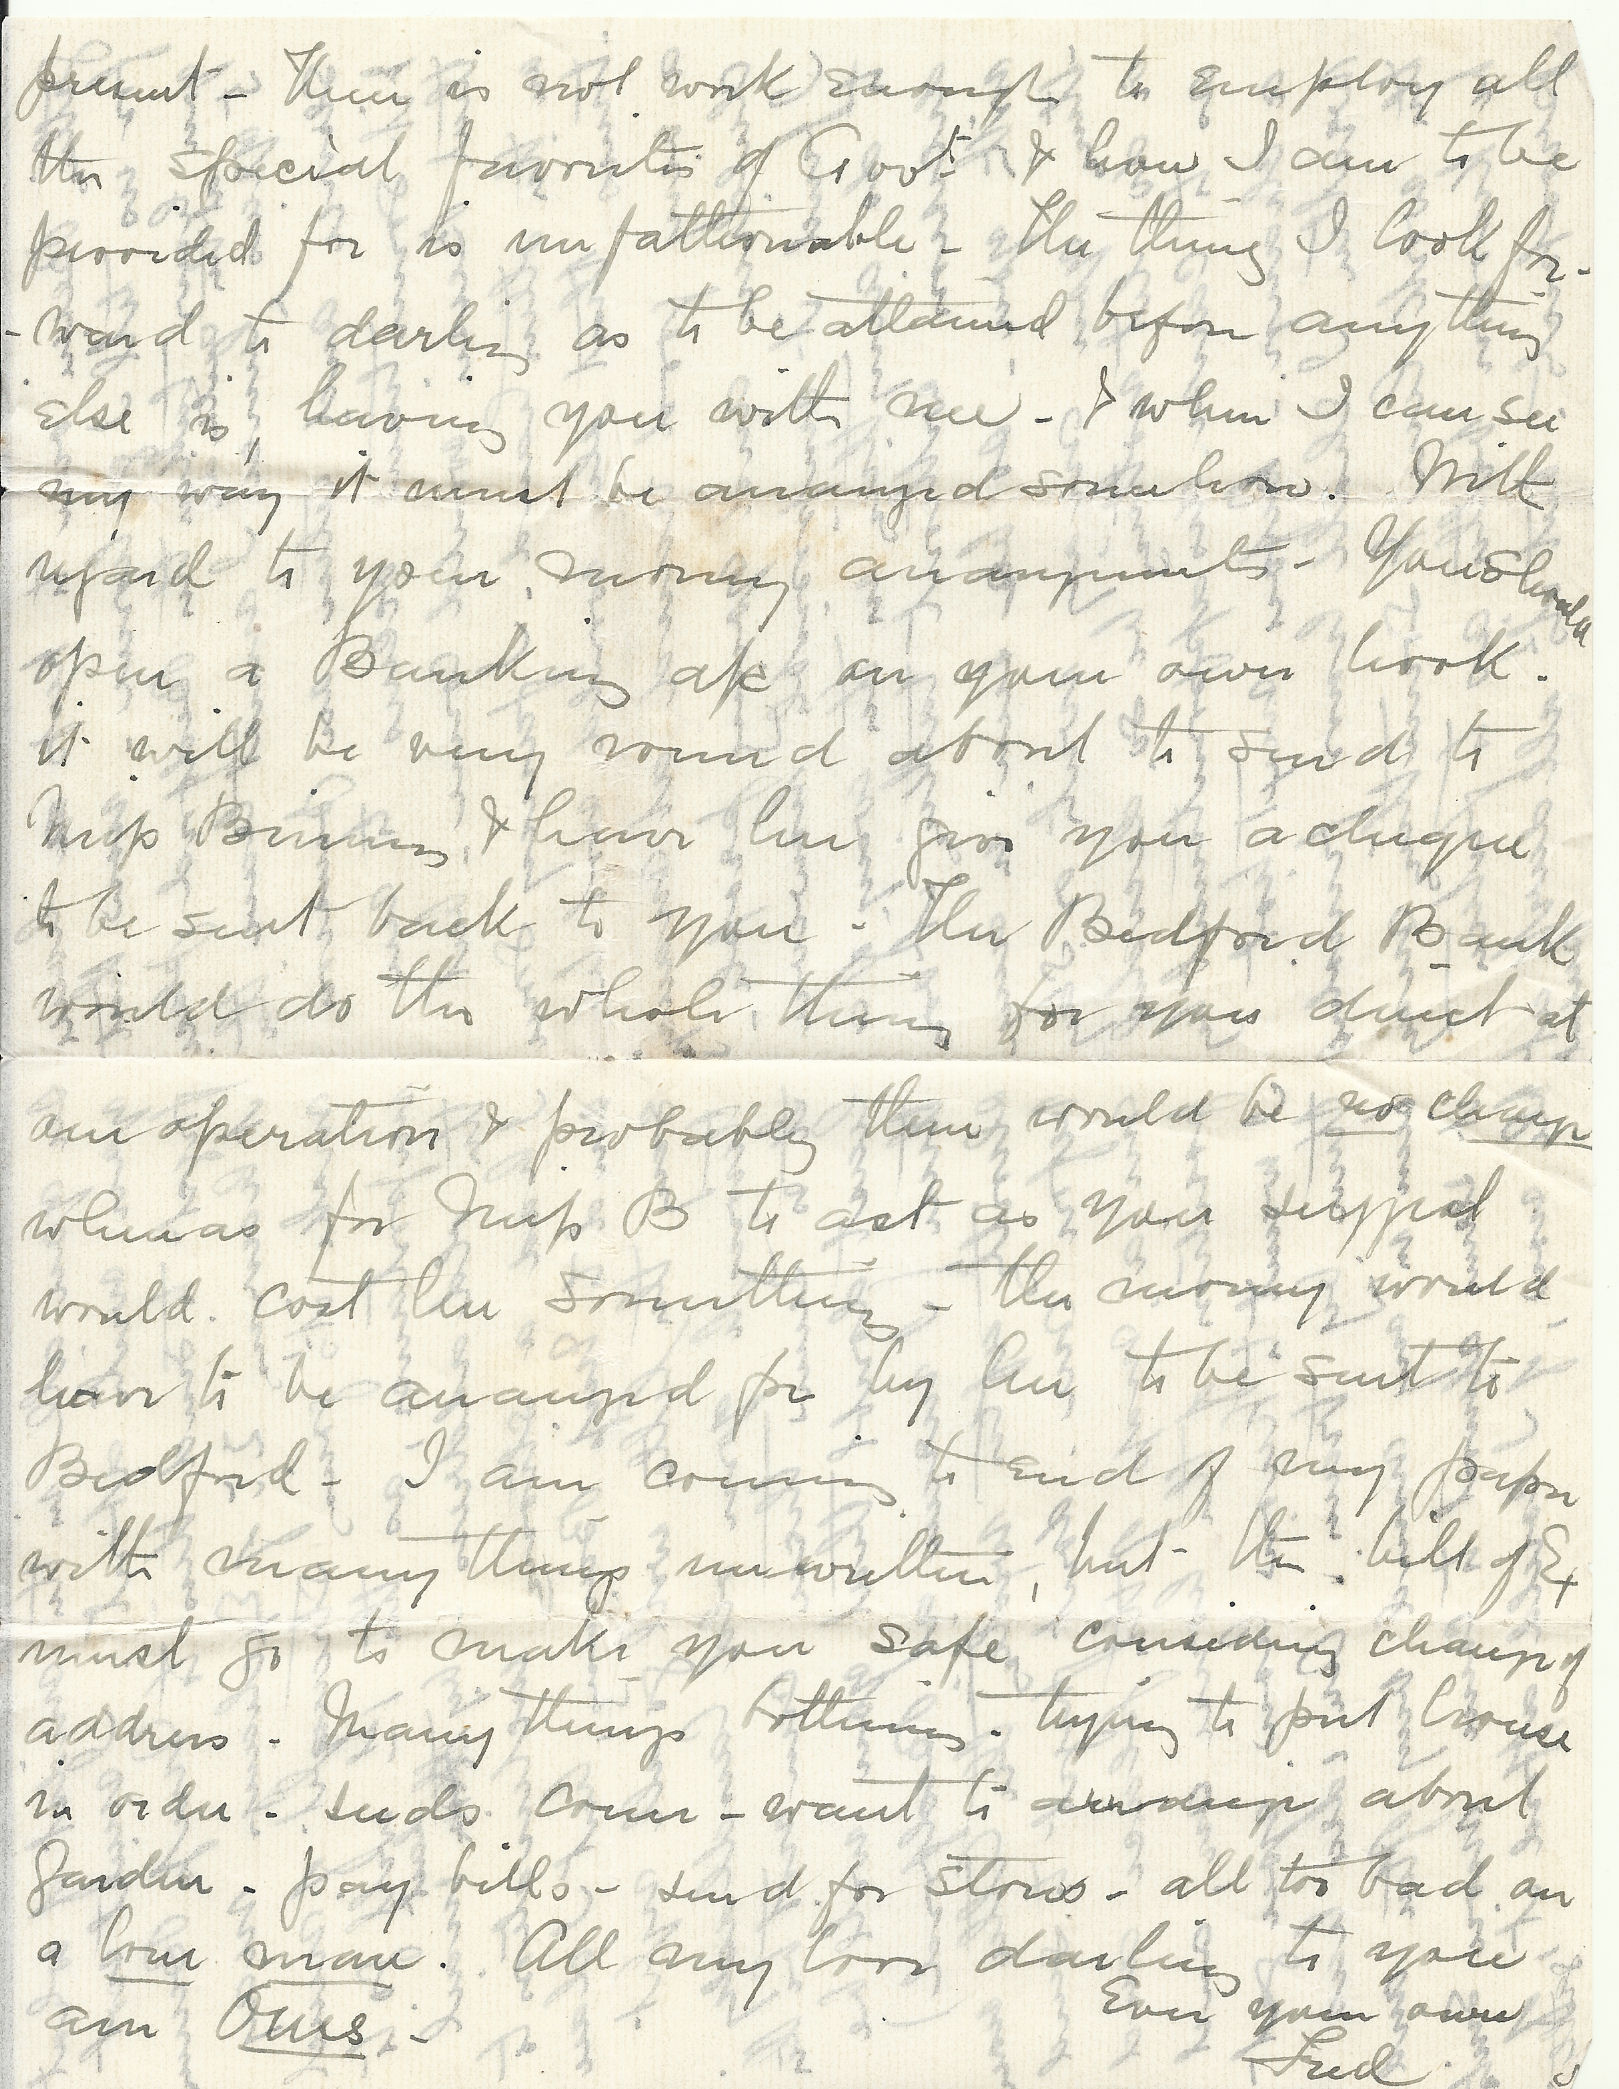 present - There is not work enough to employ all
the special favorites of Govt. & how I am to be
provided for is unfathomable - The thing I look for-
-ward to darling as to be attained before anything
else is, having you with me - & when I can see
my way it must be arranged somehow. With
regard to your money arrangements - You should
open a Banking a/c on your own hook.
it will be very round about to send to
Miss & have her give you a cheque
to be sent back to you - The Bedford Bank
would do the whole thing for you direct at
one operation & probably there would be no charge
whereas for Miss B to act as you suggest
would cost her something - the money would
have to be arranged for by her to be sent to
Bedford - I am coming to end of my paper
with many things unwritten, but the bill of Ex
must go to make you safe considering change of
address - Many things bothering - trying to put house
in order - seeds come - want to arrange about
garden - pay bills - send for stores - all too bad on
a lone man. All my love darling to you
and Ours -
Ever your own
Fred